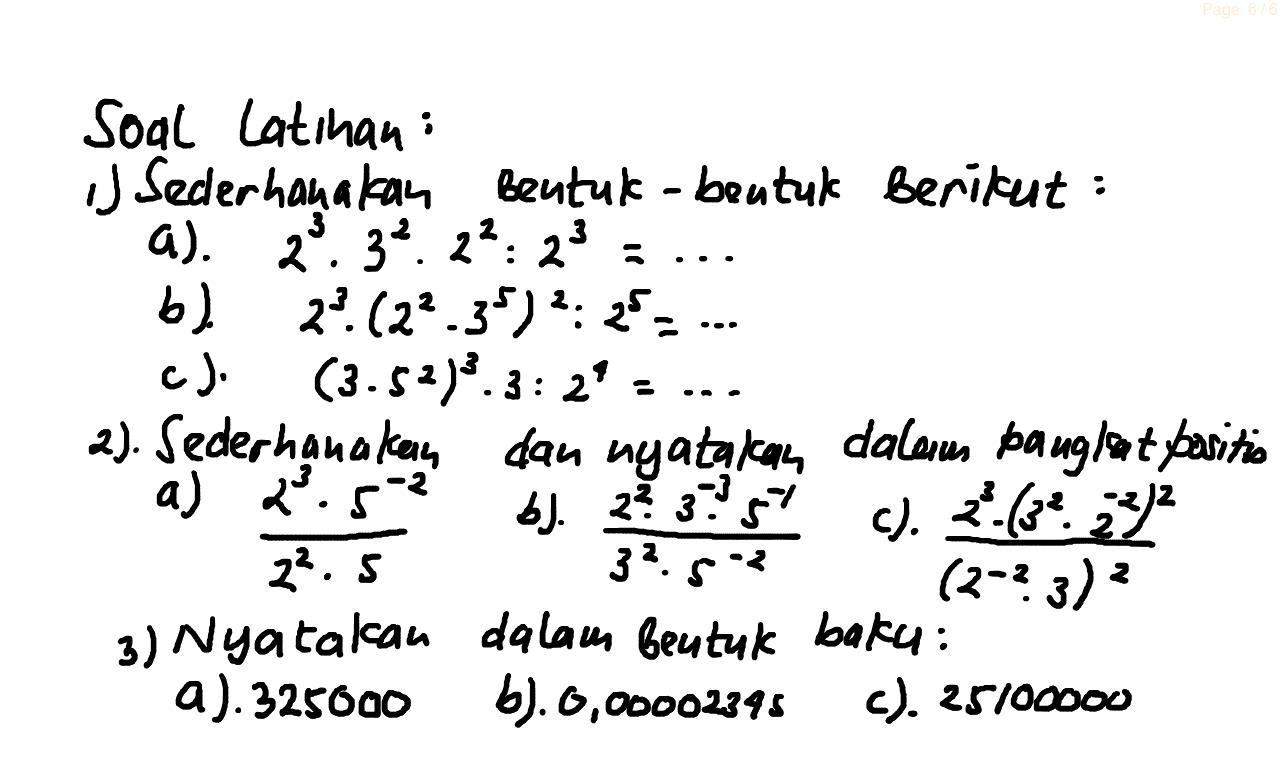 Page 6 / 6
Soal Latihan :
1) Sederhanakan Bentuk - bentuk Berikut :
a). 2³ . 3² . 2² : 2³ = ...
b). 2³ . (2² . 3⁵)² : 2⁵ = ...
c). (3 . 5²)³ . 3 : 2⁴ = ...
2). Sederhanakan dan nyatakan dalam pangkat positif
a) (2³ . 5⁻²) / (2² . 5) b). (2² . 3⁻³ . 5⁻¹) / (3² . 5⁻²) c). (2³ . (3² . 2⁻²)²) / ((2⁻² . 3)²)
3) Nyatakan dalam Bentuk baku :
a). 325000 b). 0,00002345 c). 25100000